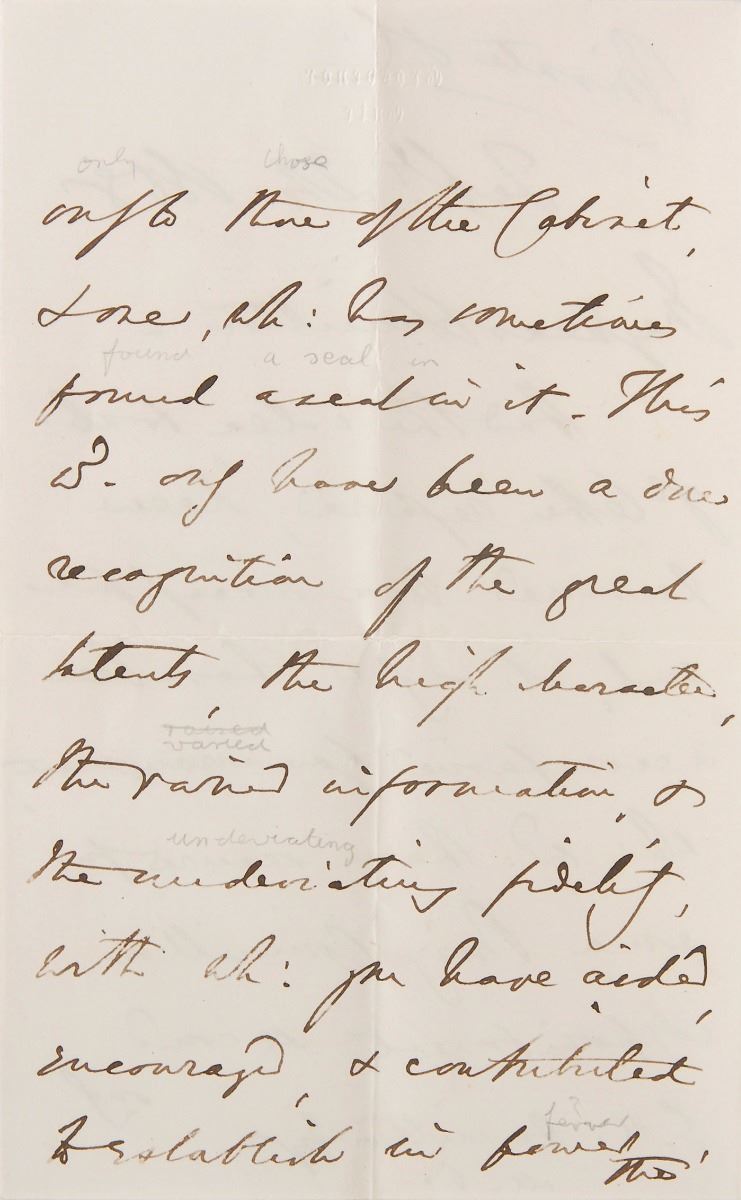 only those
only to those of the Cabinet,
& one, wh: has sometimes
found a seal in
found a seat in it. This
wd. only have been a due
recognition of the great
talents, the high character,
raised
varied
the varied information, &
undeviating
the undeviating fidelity,
with wh: you have aided,
encouraged, & contributed
to establish in power
the